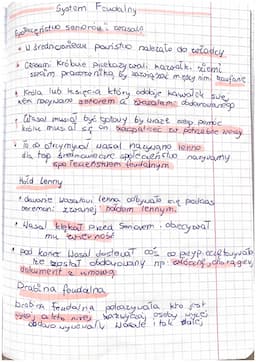 System Feudalny
Społeczeństwo seniorów i wasali
• W średniowieczu państwo należało do władcy
• Czasami królowie przekazywali kawałki ziemi
swoim pracownikom by zawiązać między nimi zaufanie
• Króla lub księcia który oddaje kawałek swej
ziemi nazywano seniorem a wasalem obdarowanego
• Wasal musiał być gotowy by w razie
musiał się on w potrzebne
• To co otrzymywał wasal nazywano lenno
dla tego średniowieczne społeczeństwo nazywamy
społeczeństwem feudalnym.
Hołd lenny
• darowanie wasalowi lenna odbywało się podczas
ceremoni zwanej hołdem lennym.
• Wasal klękał przed Seniorem i obiecywał
mu wierność
• pod koniec Wasal dostawał coś co przypieczętowywało
że został obdarowany np.
dokument z umową
Drabina feudalna
Drabina Feudalna pokazywała kto jest
wyżej a kto niżej osoby wyżej
wasale i tak dalej